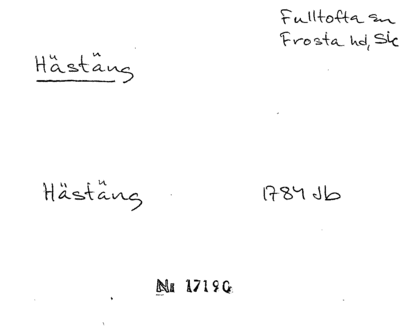 Fulltofta sn
Frosta hd, Sk
Hästäng
Hästäng 1784 Jb
№ 1719G